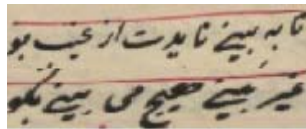 تا به بینے تا بدت از غیب بو
غیر بینے هیچ می بینے بگو